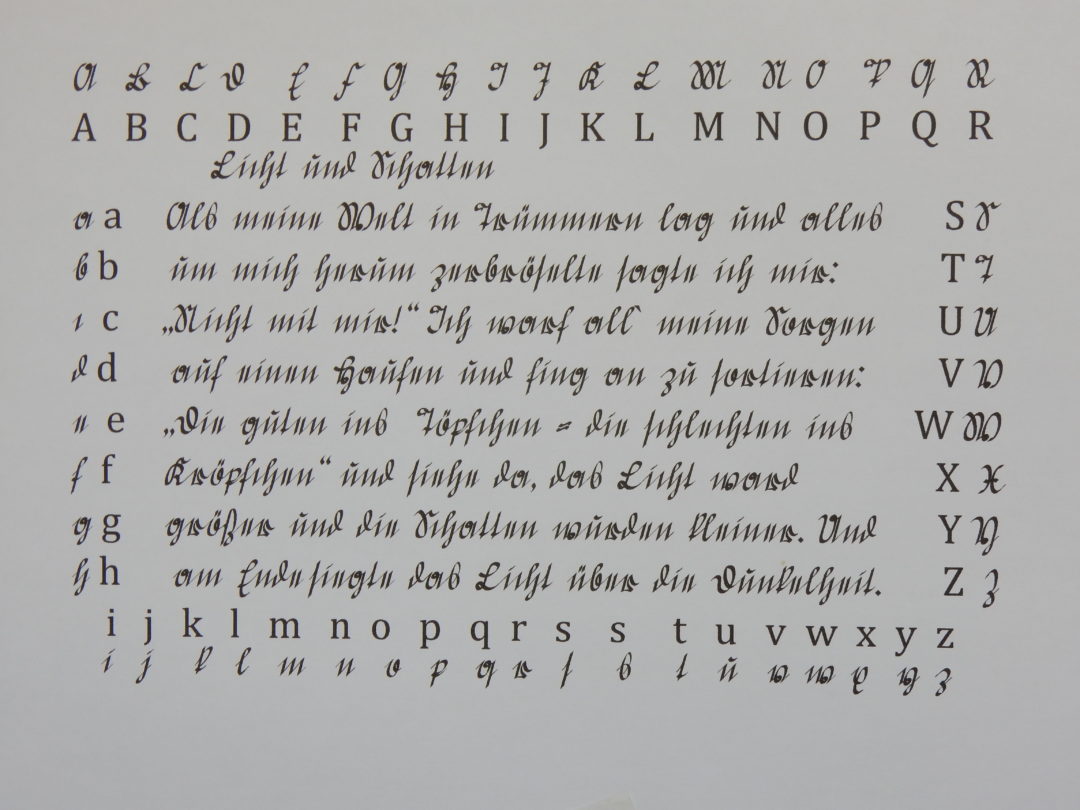 A B C D E F G H I J K L M N O P Q R
A B C D E F G H I J K L M N O P Q R
Licht und Schatten
a a Als meine Welt in Trümmern lag und alles S S
b b um mich herum zerbröselte sagte ich mir: T T
c c „Nicht mit mir!“ Ich warf all` meine Sorgen U U
d d auf einen Haufen und fing an zu sortieren: V V
e e „Die guten ins Töpfchen = die schlechten ins W W
f f Kröpfchen“ und siehe da, das Licht ward X X
g g größer und die Schatten wurden kleiner. Und Y Y
h h am Ende siegte das Licht über die Dunkelheit. Z Z
i j k l m n o p q r s s t u v w x y z
i j k l m n o p q r ſ s t u v w x y z